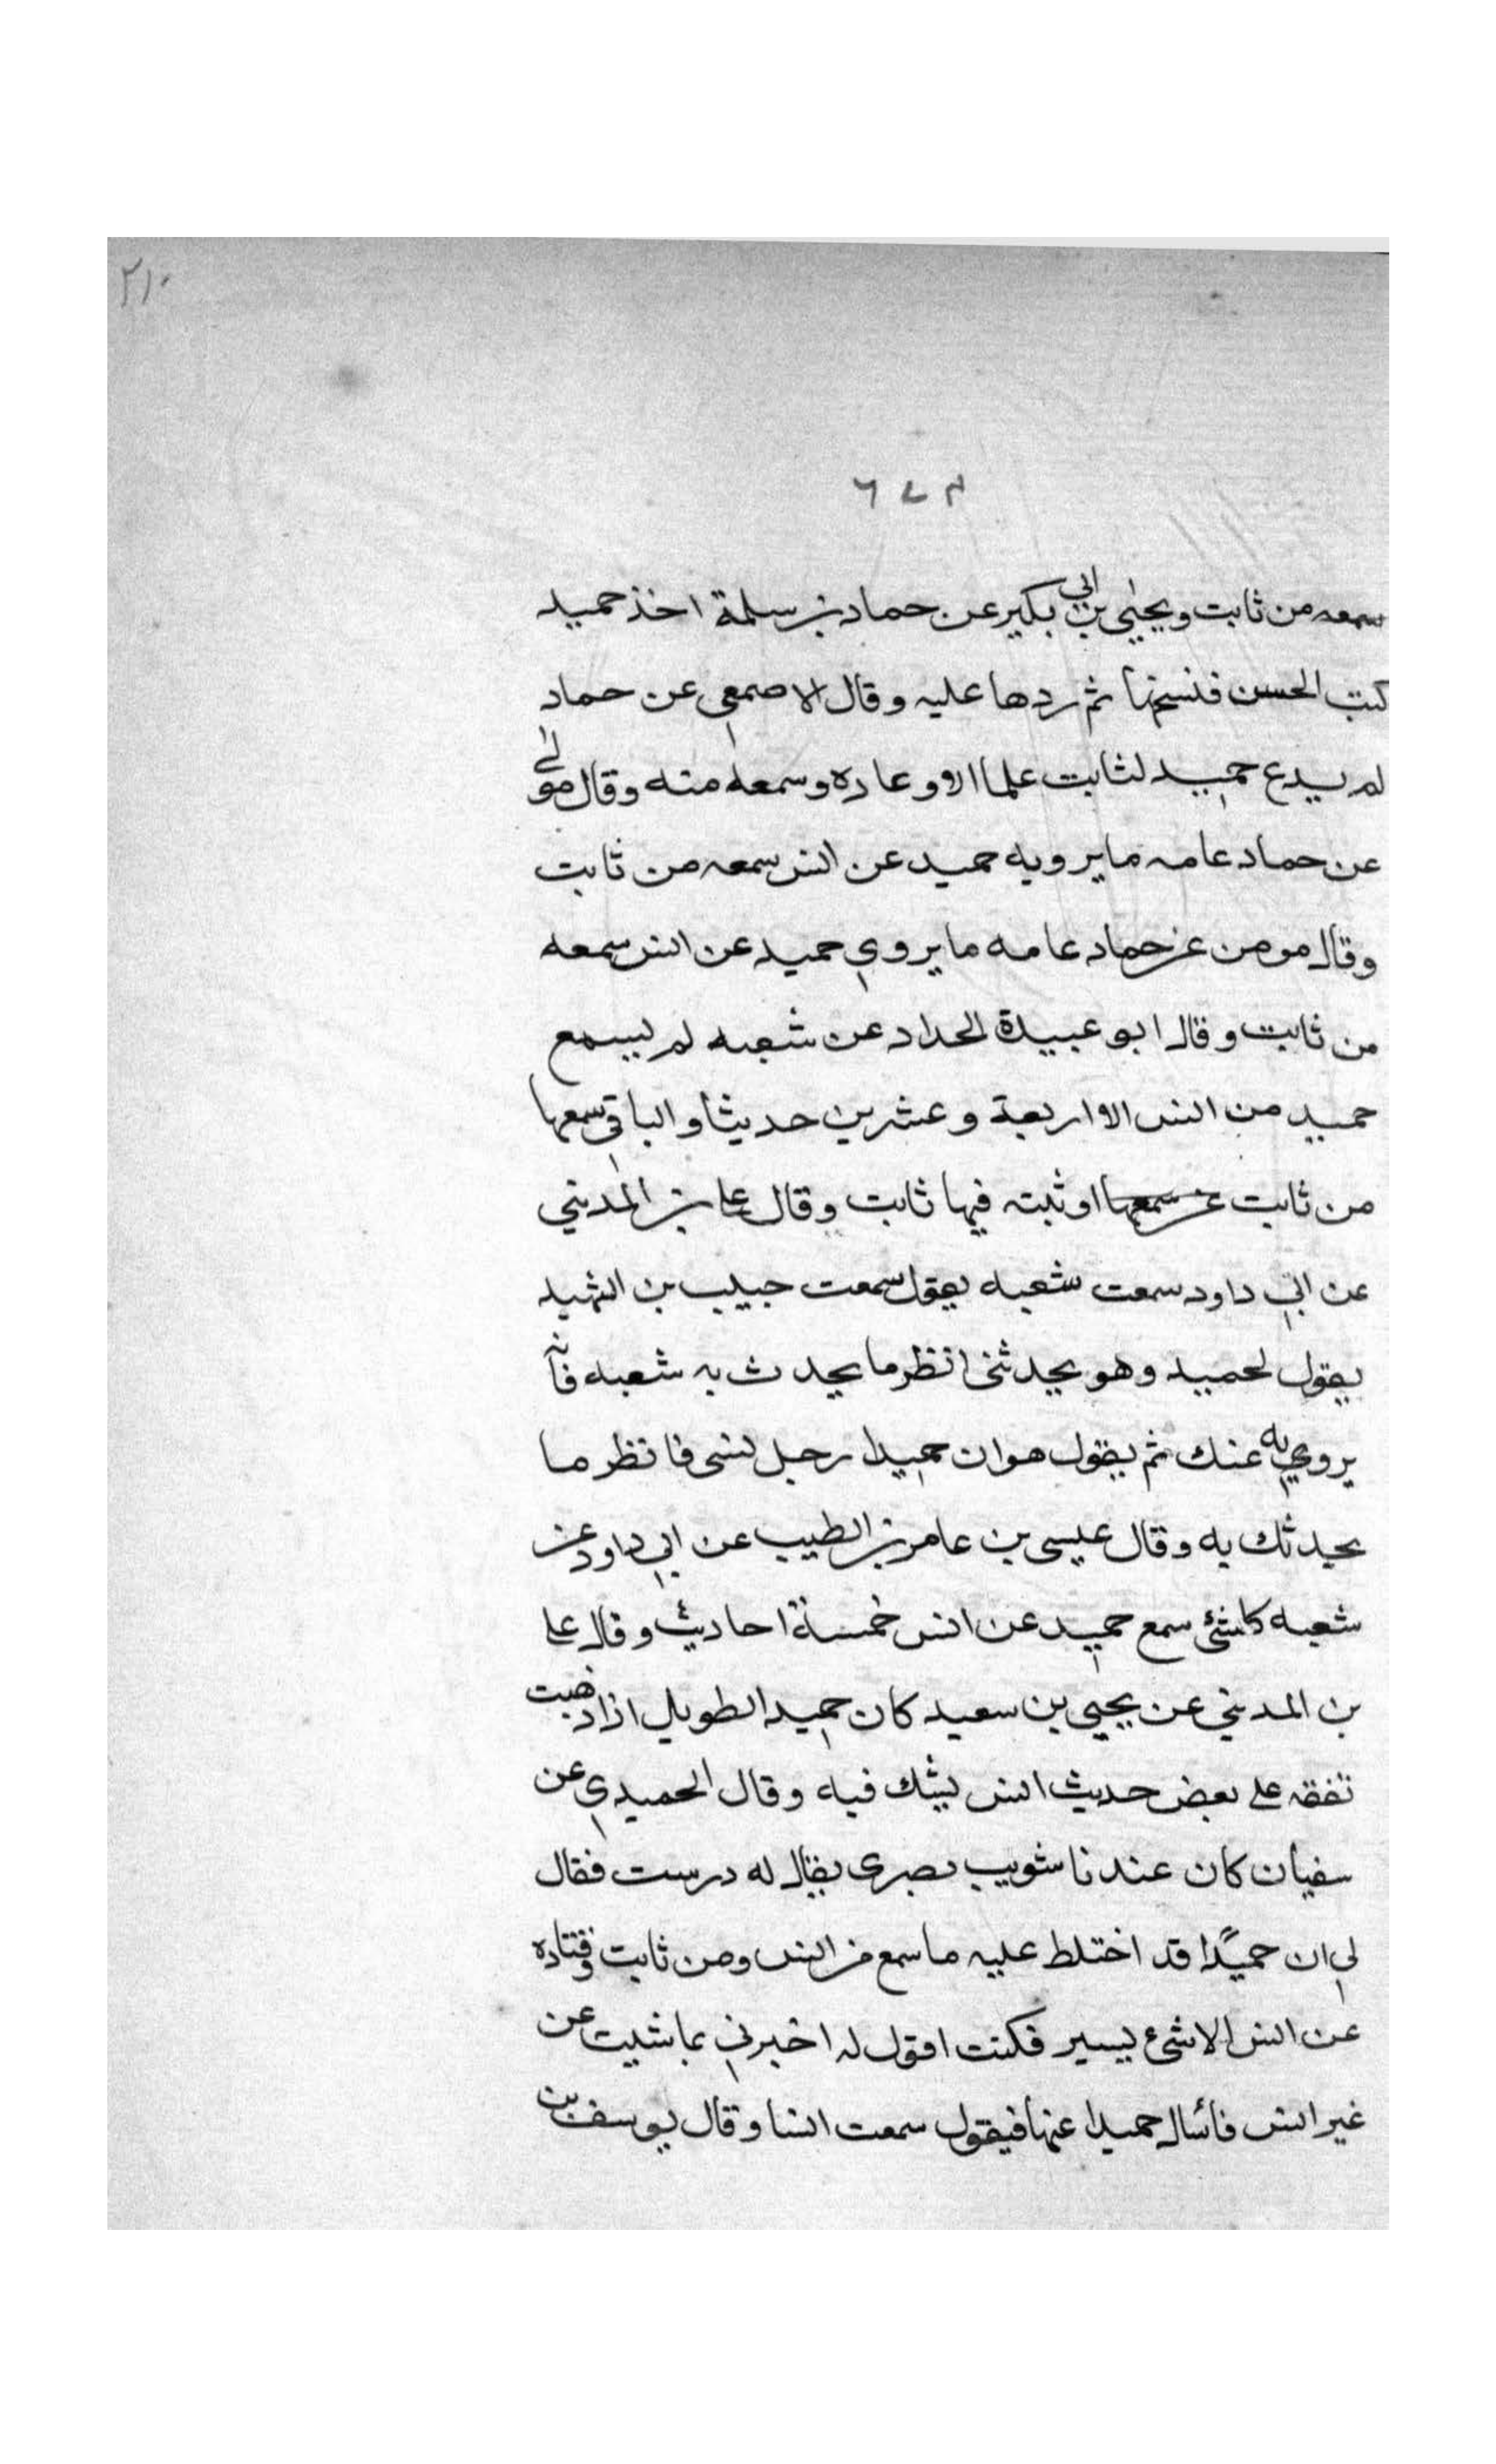 ٢١٠
سمعه من ثابت ويحيى بن ابي بكير عن حماد بن سلمة اخذ حميد
كتب الحسن فنسخها ثم ردها عليه وقال الاصمعي عن حماد
لم يدع حميد لثابت علما الا وعاده وسمعه منه وقال
عن حماد عامه ما يرويه حميد عن انس سمعه من ثابت
وقال مومن عن حماد عامه ما يروي حميد عن انس سمعه
من ثابت وقال ابو عبيدة الحداد عن شعبه لم يسمع
حميد من انس الا اربعة وعشرين حديثا والباقي سمعها
من ثابت او ثبته فيها ثابت وقال علي بن المديني
عن ابي داود سمعت شعبه يقول سمعت حبيب بن الشهيد
يقول لحميد وهو يحدثني انظر ما يحدث به شعبه فانه
يرويه عنك ثم يقول هو ان حميدا رجل نسى فانظر ما
يحدثك به وقال عيسى بن عامر بن الطيب عن ابي داود عن
شعبه كلشئ سمع حميد عن انس خمسة احاديث وقال علي
بن المديني عن يحيى بن سعيد كان حميد الطويل اذا ذهبت
تفقه على بعض حديث انس يشك فيه وقال الحميدي عن
سفيان كان عندنا شويب بصرى يقال له درست فقال
لي ان حميدا قد اختلط عليه ما سمع من انس ومن ثابت وقتاده
عن انس الا شئ يسير فكنت اقول له اخبرني بما شيت عن
غير انس فأسال حميدا عنها فيقول سمعت انسا وقال يوسف بن